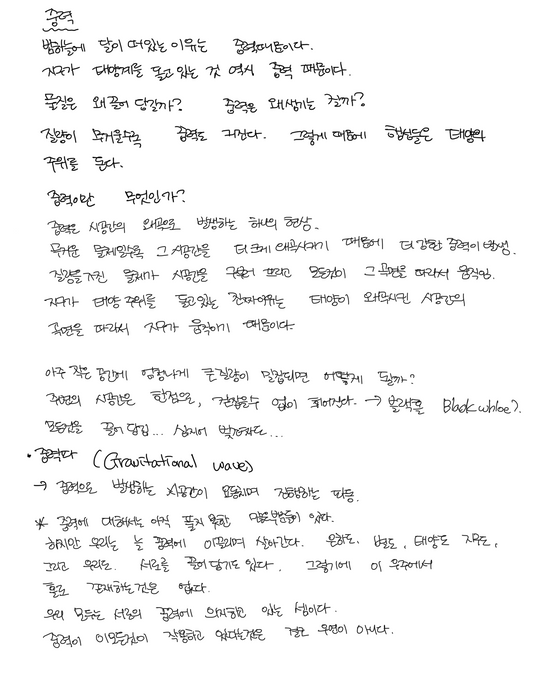 중력
밤하늘에 달이 떠있는 이유는 중력때문이다.
지구가 태양계를 돌고 있는 것 역시 중력 때문이다.
물질은 왜 끌어 당길까? 중력은 왜 생기는 걸까?
질량이 무거울수록 중력도 커진다. 그렇게 때문에 행성들은 태양의
주위를 돈다.
중력이란 무엇인가?
중력은 시공간의 왜곡으로 발생하는 하나의 현상.
무거운 물체일수록 그 시공간을 더 크게 왜곡시키기 때문에 더 강한 중력이 발생.
질량을 가진 물체가 시공간을 구부러 트리고 모든것이 그 곡면을 따라서 움직임.
지구가 태양 주위를 돌고 있는 진짜이유는 태양이 왜곡시킨 시공간의
곡면을 따라서 지구가 움직이기 때문이다
아주 작은 공간에 엄청나게 큰 질량이 밀집되면 어떻게 될까?
주변의 시공간은 한점으로, 겉잡을수 없이 휘어진다. → 블랙홀 Black whole).
모든것을 끌어 당김... 심지어 빛조차도...
• 중력파 (Gravitational wave)
→ 중력으로 발생하는 시공간이 요동치며 진행하는 파동.
* 중력에 대해서는 아직 풀지 못한 많은부분들이 있다.
하지만 우리는 늘 중력에 이끌리며 살아간다. 은하도, 별도, 태양도 지구도,
그리고 우리도. 서로를 끌어 당기고 있다. 그렇기에 이 우주에서
홀로 존재하는것은 없다.
우리 모두는 서로의 중력에 의지하고 있는 셈이다.
중력이 이모든것이 작용하고 있다는것은 결코 우연이 아니다.